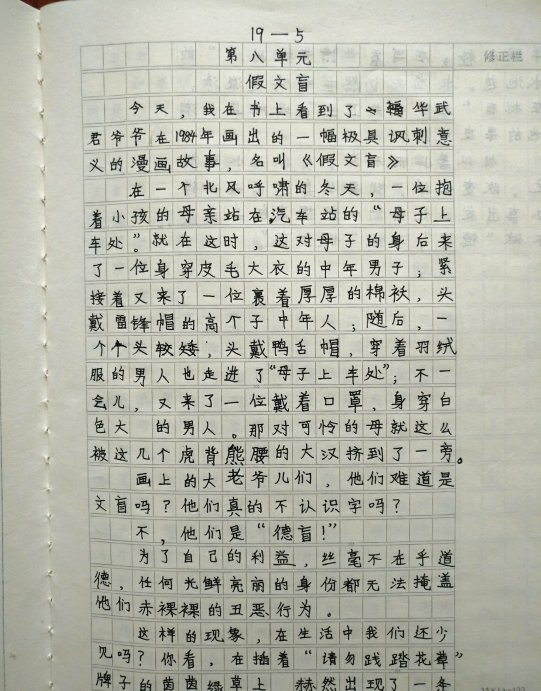 19—5
第八单元
修正栏
假文盲
今天，我在书上看到了华武
君爷爷在1984年画出的一幅极具讽刺意
义的漫画故事，名叫《假文盲》
在一个北风呼啸的冬天，一位抱
着小孩的母亲站在汽车站的“母子上
车处”。就在这时，这对母子的身后来
了一位身穿皮毛大衣的中年男子；紧
接着又来了一位裹着厚厚的棉袄，头
戴雷锋帽的高个子中年人；随后，一
个个头较矮，头戴鸭舌帽，穿着羽绒
服的男人也走进了“母子上车处”；不一
会儿，又来了一位戴着口罩，身穿白
色大 的男人。那对可怜的母就这么
被这几个虎背熊腰的大汉挤到了一旁。
画上的大老爷儿们，他们难道是
文盲吗？他们真的不认识字吗？
不，他们是“德盲！”
为了自己的利益，丝毫不在乎道
德，任何光鲜亮丽的身份都无法掩盖
他们赤裸裸的丑恶行为。
这样的现象，在生活中我们还少
见吗？你看，在插着“请勿践踏花草”
牌子的茵茵绿草上，赫然出现了一条